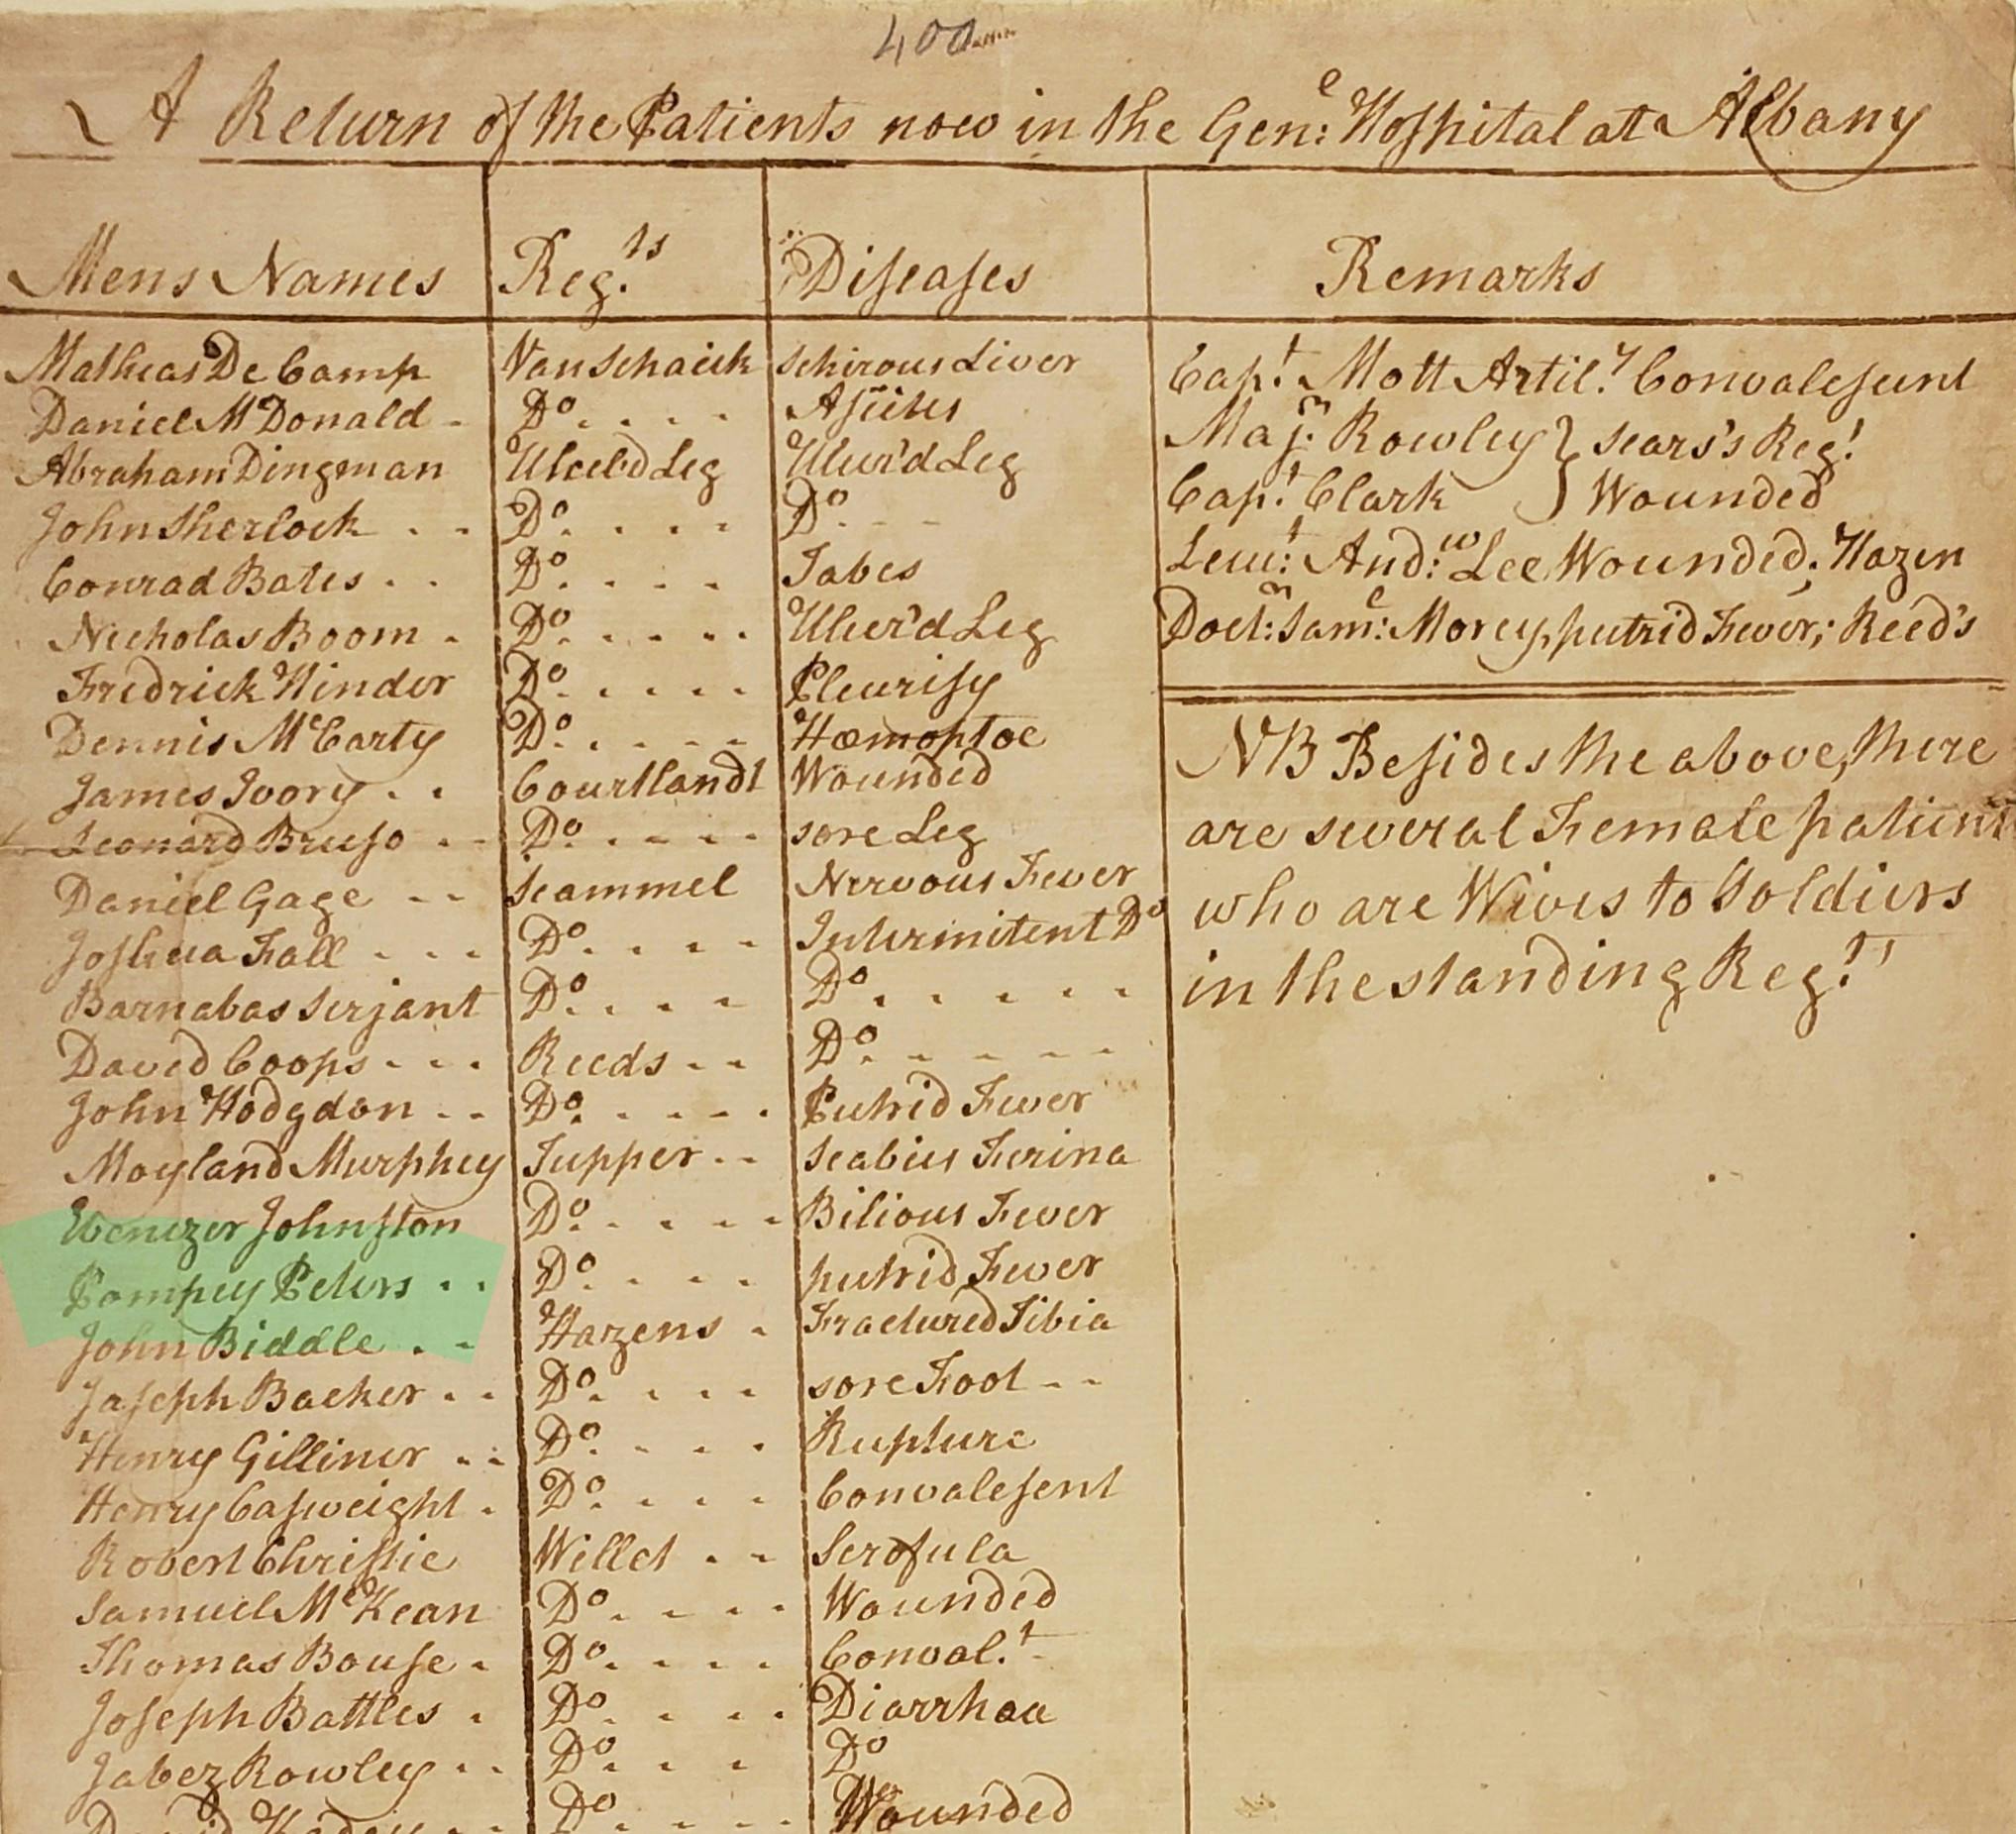 400
A Return of the Patients now in the Gen:e Hospital at Albany
Mens Names Reg.ts Diseases Remarks
Mathias De Camp Van Schaick Schirous Liver
Daniel McDonald - Do. . . . - Ascites
Abraham Dingman Ulcer'd Leg Ulcer'd Leg
John Sherlock . . Do. . . . . Do. - -
Conrad Bates . . Do. . . . . Tabes
Nicholas Boom . Do. . . . . Ulcer'd Leg
Fredrick Hinder Do. . . . . Pleurisy
Dennis McCarty Do. . . . . Hæmoptoe
James Ivory . . Courtlandt Wounded
Leonard Bruso . . Do. . . . . sore Leg
Daniel Gage - - Scammel Nervous Fever
Joshua Fall - - - Do. . . . . Intermitent Do
Barnabas Serjant Do. . . . Do. . . . . .
David Coops - - - Reeds - - Do. - - - - -
John Hodgdon - - Do. . . . . Putrid Fever
Moyland Murphey Tupper - - Scabies Ferina
Ebenezer Johnston Do. . . . . Bilious Fever
Pompey Peters . . Do. . . . . putrid Fever
John Biddle . . Hazens . Fractured Tibia
Joseph Backer . . Do. . . . . sore Foot - -
Henry Gilliner . . Do. . . . . Rupture
Henry Casweight . Do. . . . . Convalesent
Robert Christie Willet . - Scrofula
Samuel McKean Do. . . . . Wounded
Thomas Bouse . Do. . . . . Conval.t
Joseph Battles . Do. . . . . Diarrhœa
Jabez Rowley . . Do. . . . Do
David Do. . . . . Wounded
Cap.t Mott Artil.y Convalesent
Maj.r Rowley } Sears's Reg.t
Cap.t Clark } Wounded
Leiu.t And:w Lee Wounded. Hazen
Doct:r Sam:l Morey, putrid Fever; Reed's
NB Besides the above, there
are several Female patients
who are Wives to Soldiers
in the standing Reg.ts